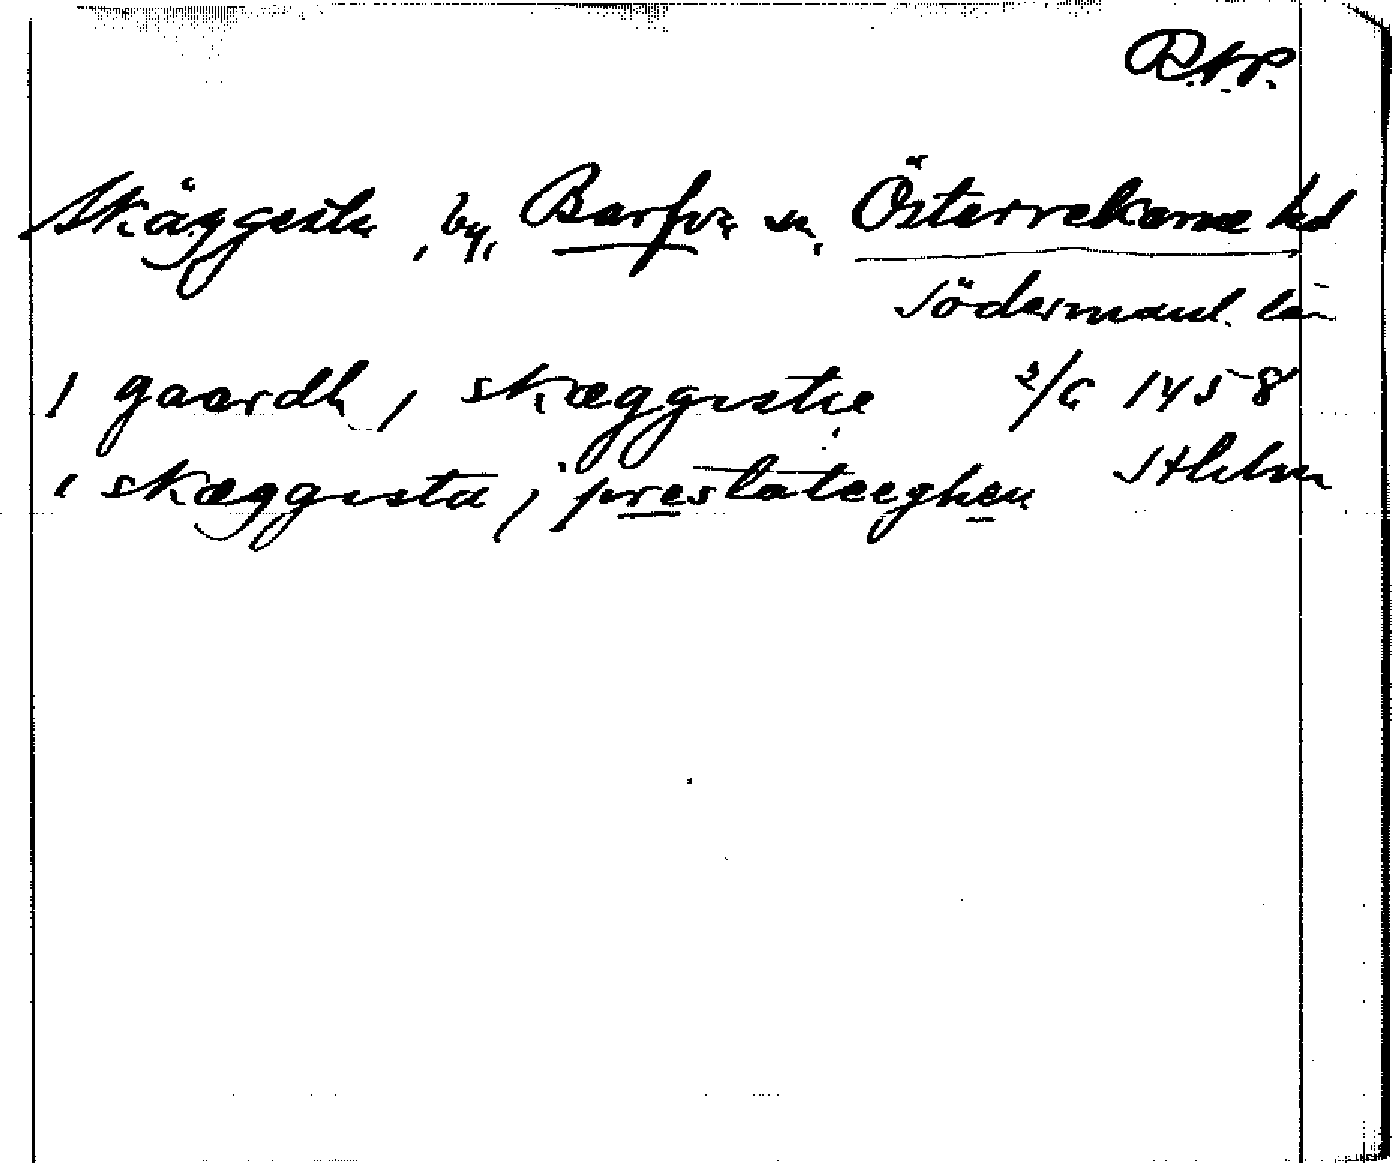 R.A.P.
Skäggesta, by, Barfva sn, Österrekarne hd
Södermanl. län
1 gaardh, i skæggistæ 2/6 1458
i skæggista, i prestatæghen Sthlm